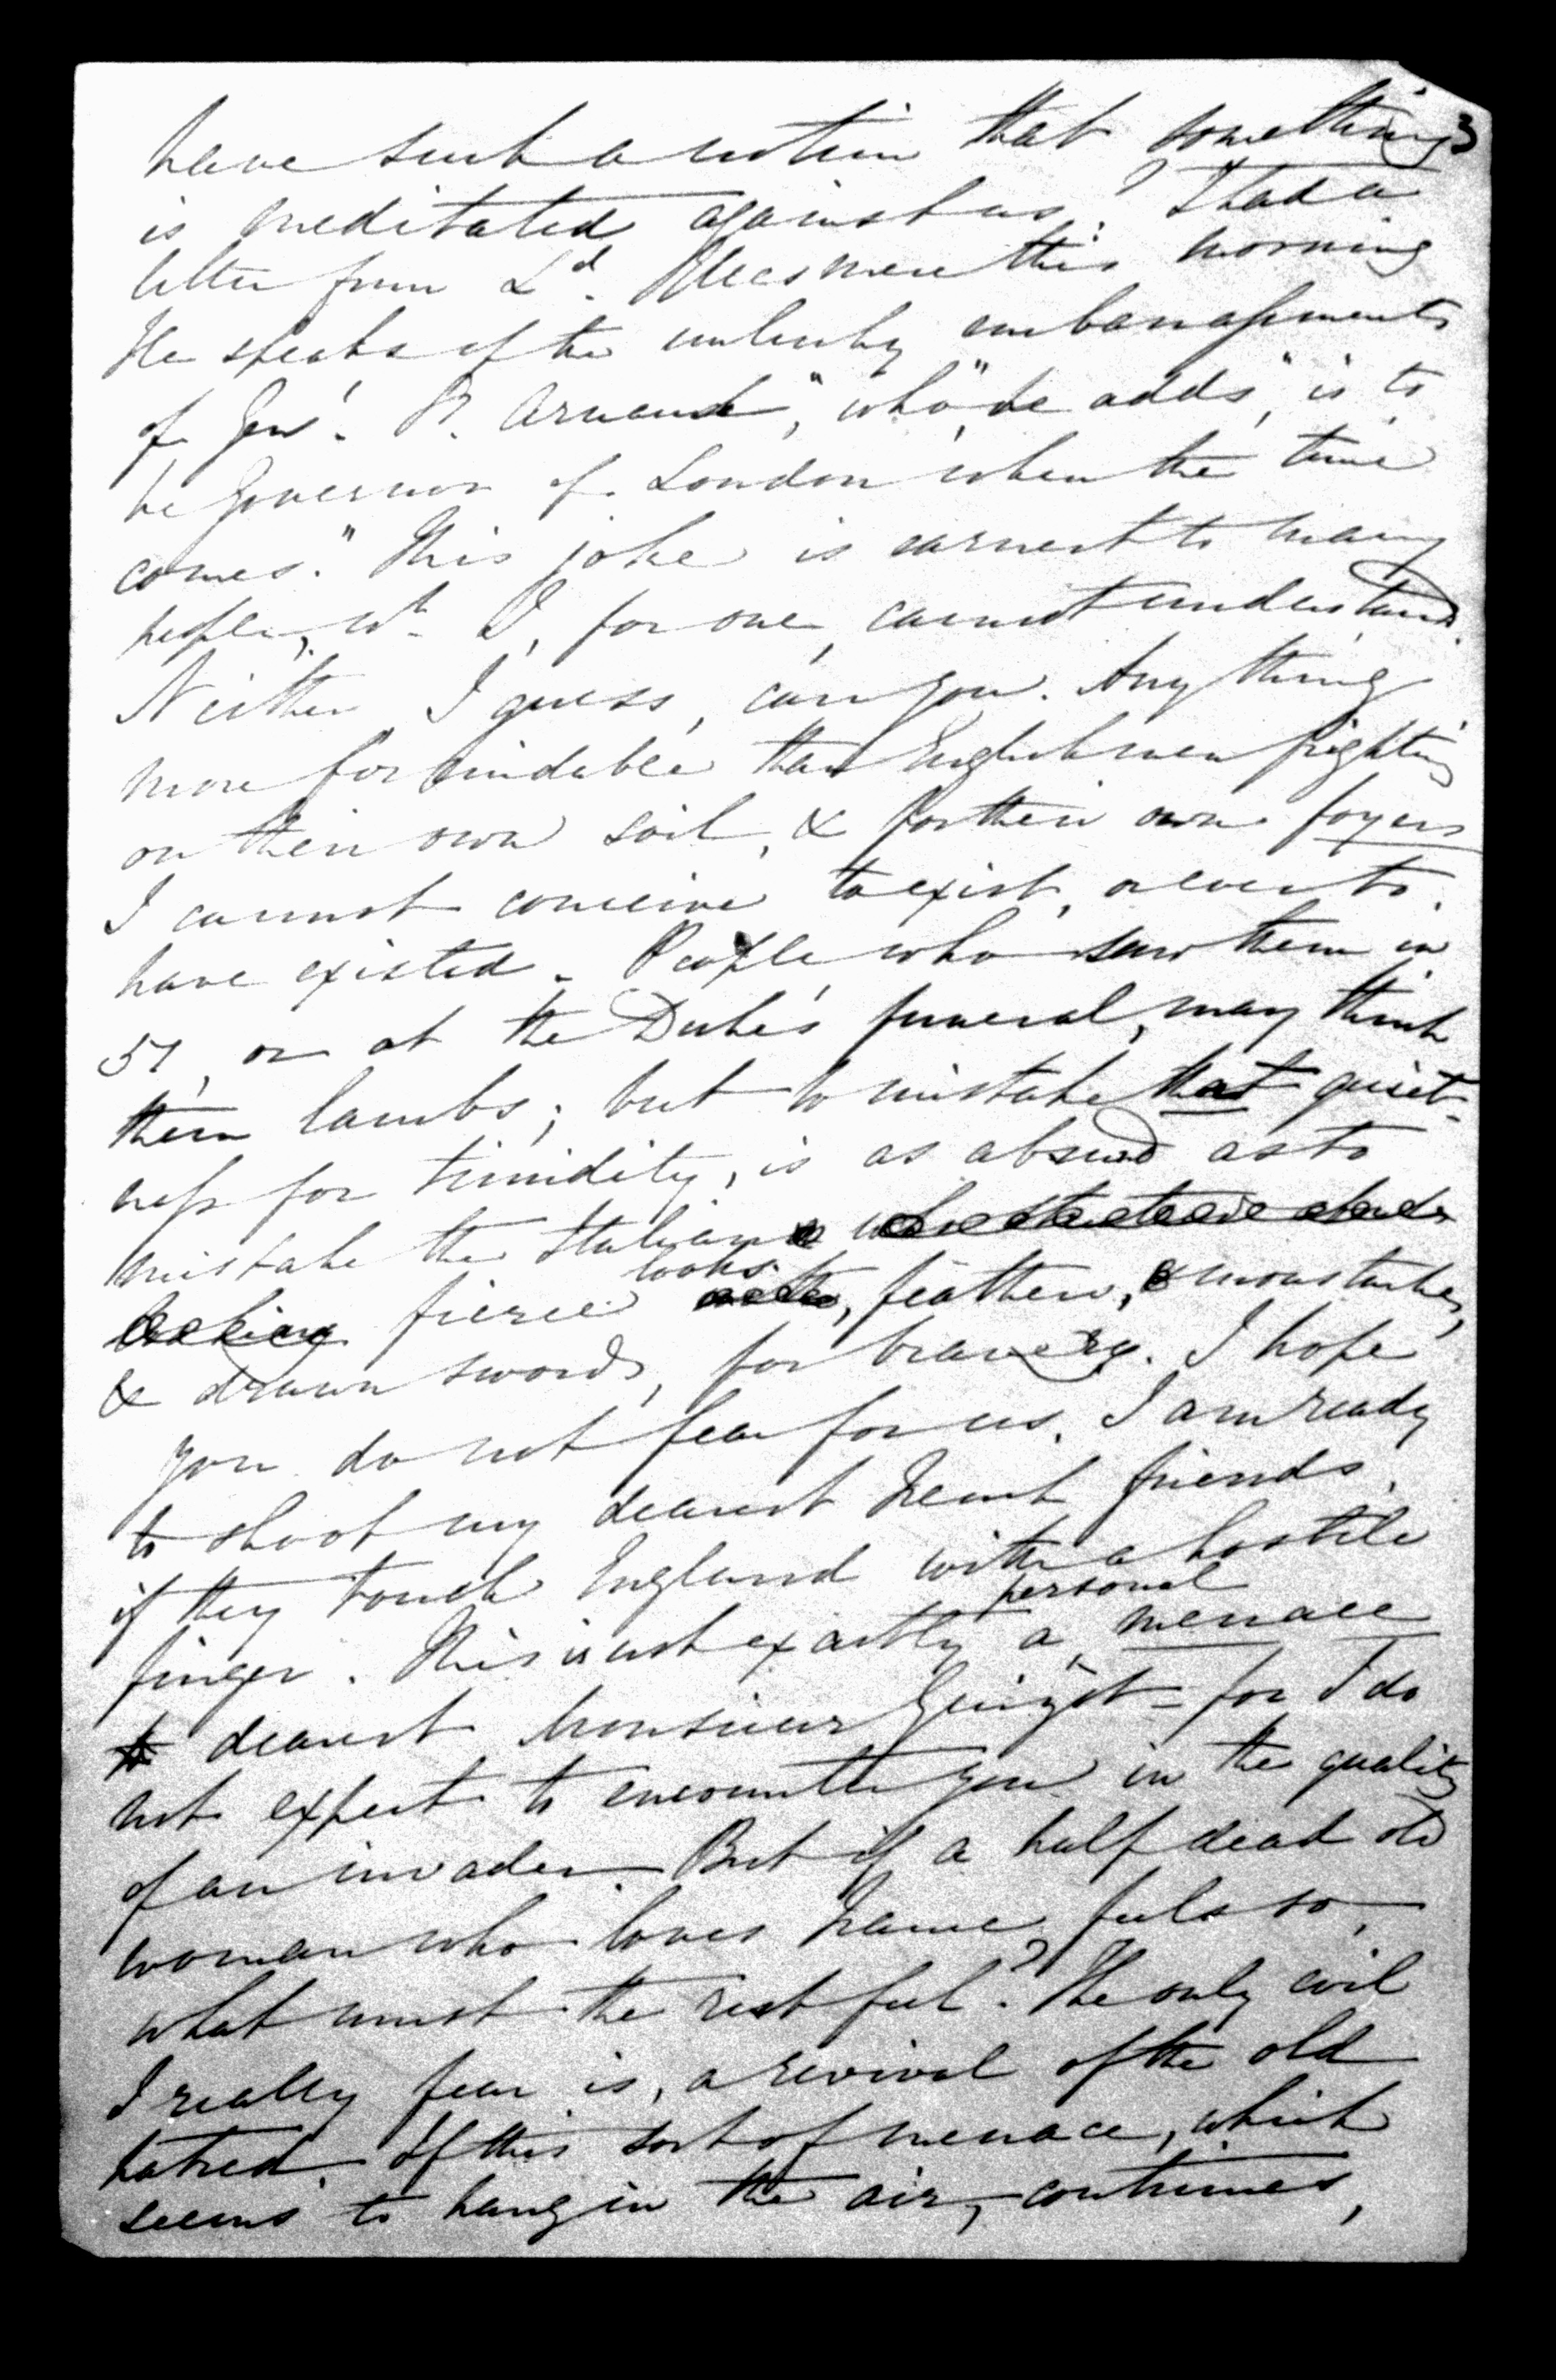 3
have such a notion that something
is meditated against us? I had a
letter from Ld. Ellesmere this morning
He speaks of the unlucky embarrassments
of Genl. St. Arnaud, "who" he adds, "is to
be Governor of London when the time
comes." This joke is earnest to many
people, wh. I, for one, cannot understand.
Neither I guess, can you. Anything
more formidable than Englishmen fighting
on their own soil, & for their own foyers
I cannot conceive to exist, or ever to
have existed. People who saw them in
51, or at the Duke's funeral, may think
them lambs; but to mistake that quiet-
ness for timidity, is as absurd as to
mistake the Italian
looks
fierce, feathers, & moustaches,
& drawn swords, for bravery. I hope
you do not fear for us. I am ready
to shoot my dearest French friends,
if they touch England with a hostile
personal
finger. This is not exactly a menace
dearest Monsieur Guizot – for I do
not expect to encounter you in the quality
of an invader. But if a half dead old
woman who loves France, feels so,
what must the rest feel? The only evil
I really fear is, a revival of the old
hatred. If this sort of menace, which
seems to hang in the air, continues,